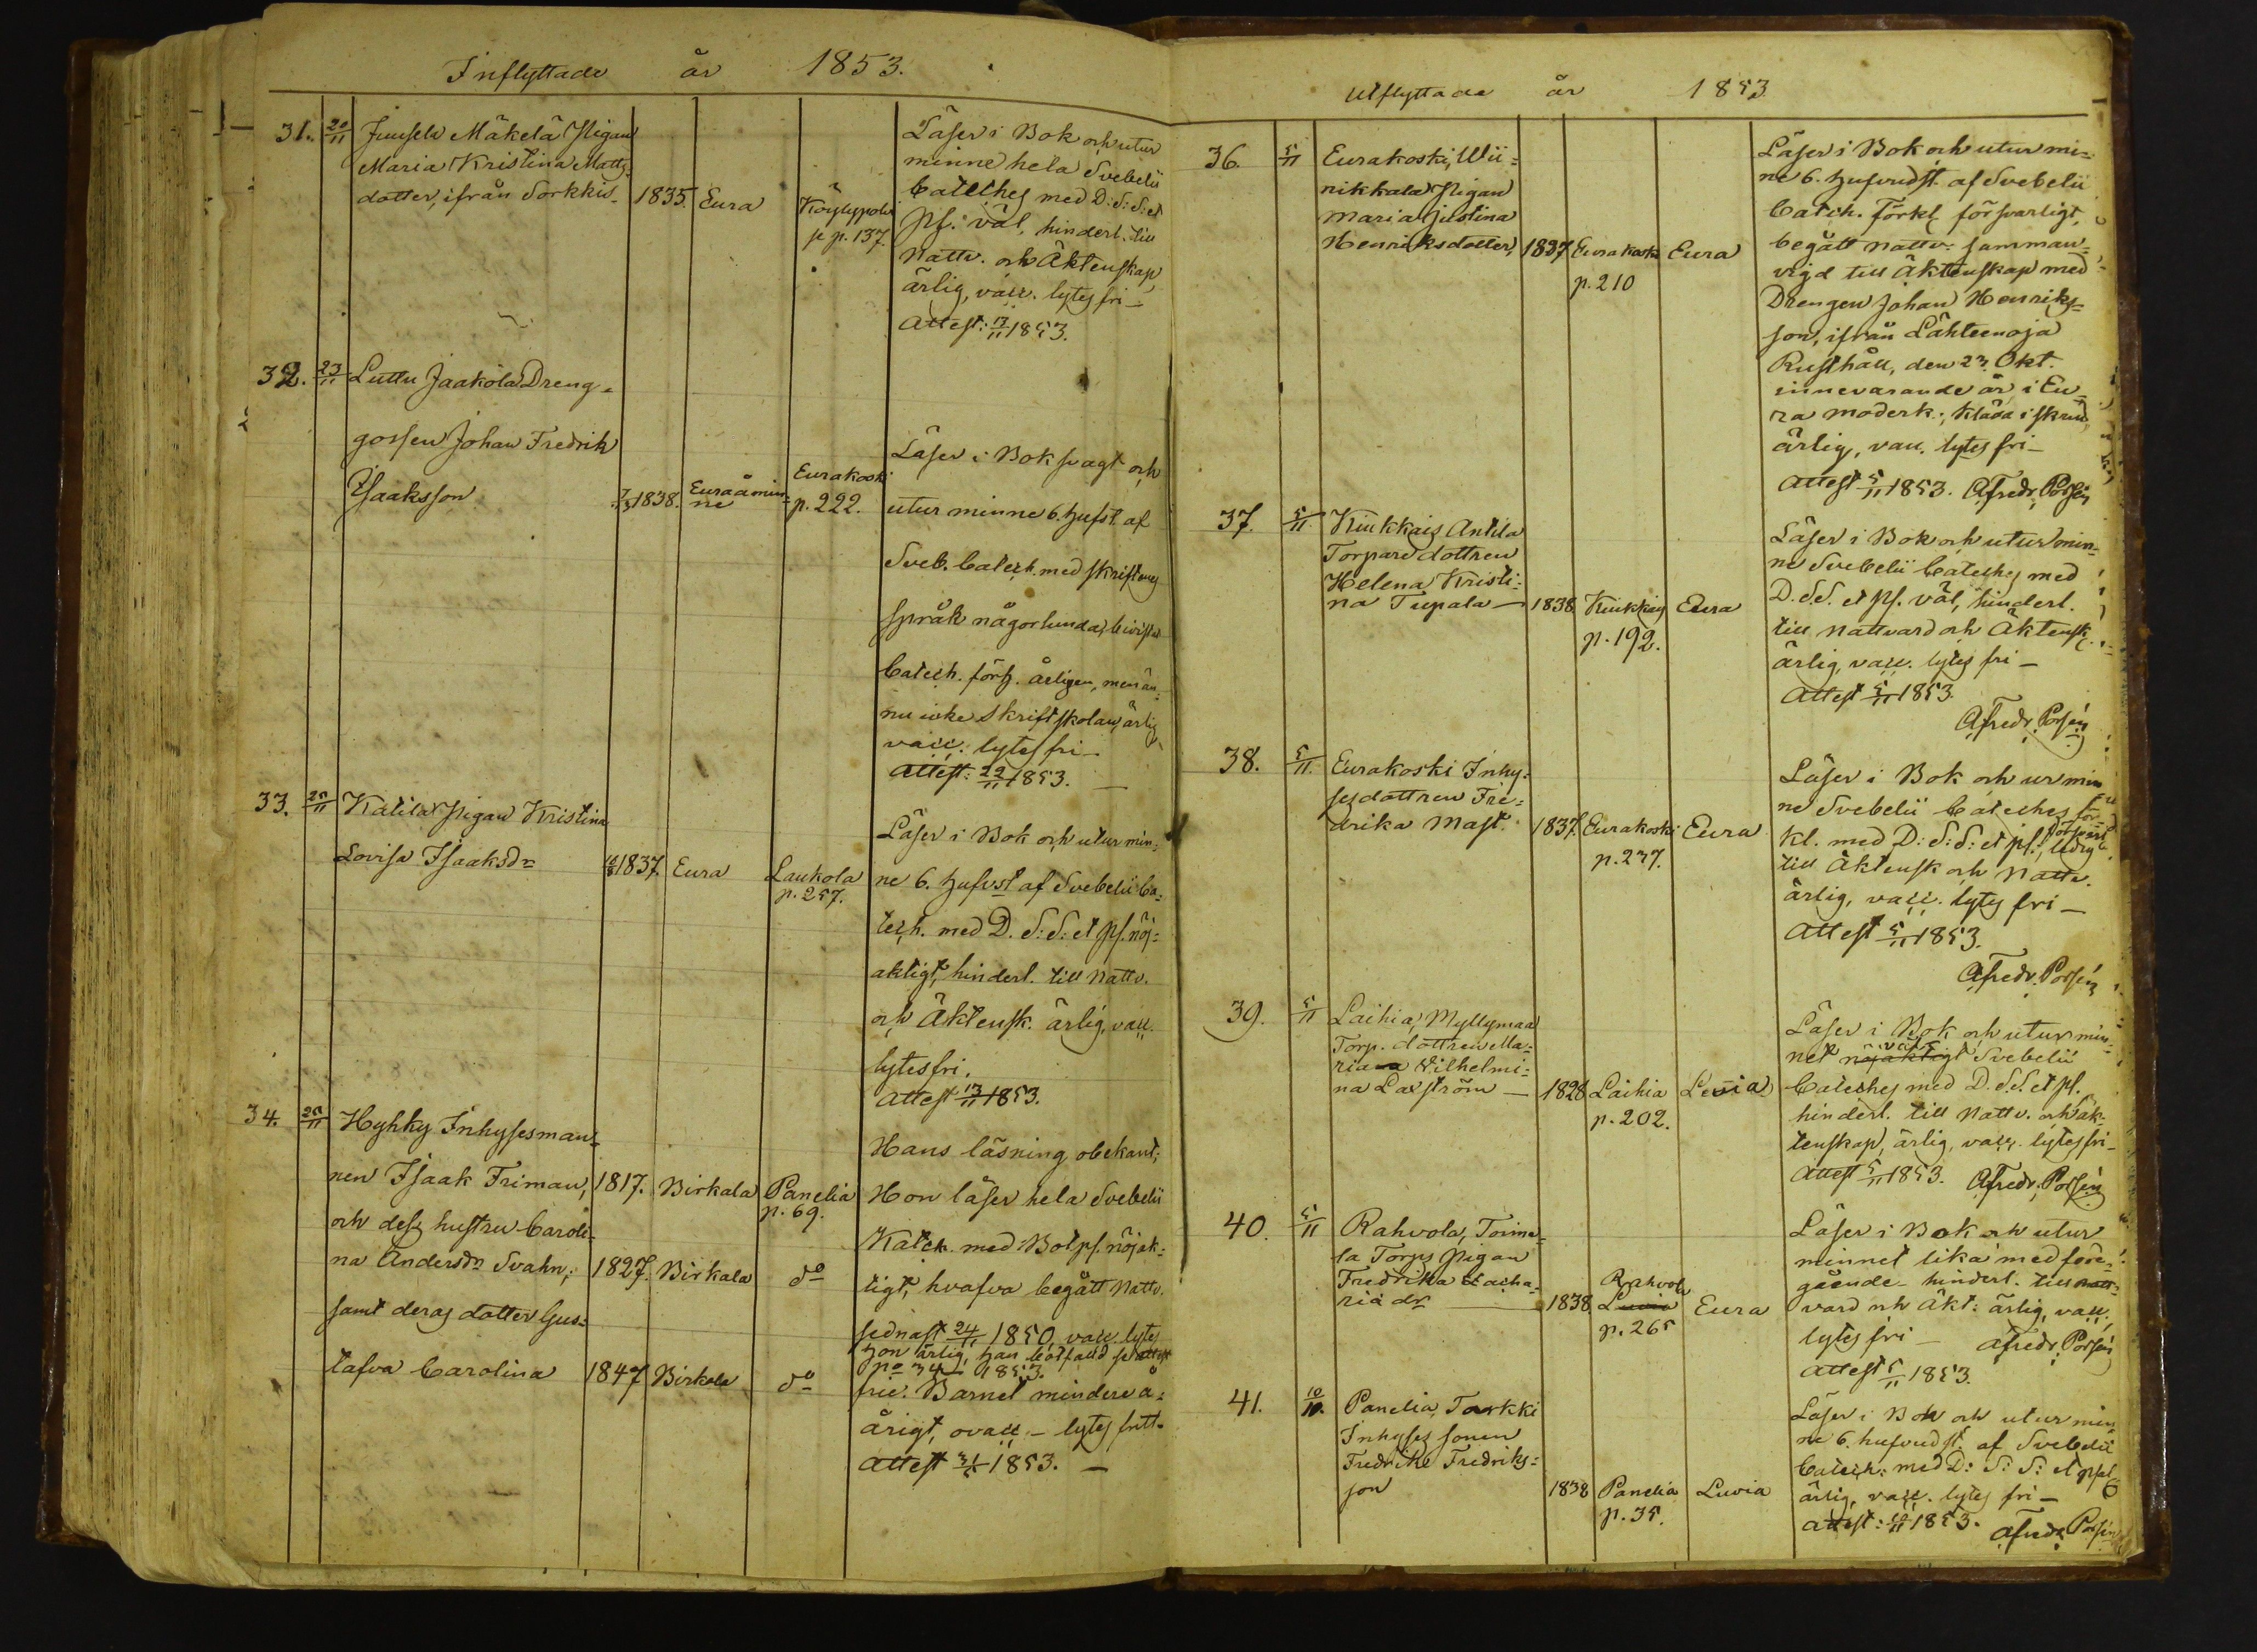 Inflyttade år 1853.
31. 20/11 Juusela Mäkelä Pigan
Maria Kristina Matts-
dotter, ifrån Sorkkis. 1835. Eura Köylypolv
p. 137
Läser i Bok och utur
minne hela Svebelii
Cateches med D: S: S: et
ps: väl, hinderl. till
Nattv. och Äktenskap,
ärlig, vacc. lytes fri —
Attest: 17/11 1853.
32. 23/11 Luttu Jaakola Dreng-
gossen Johan Fredrik
Isaaksson 1838. Euraåmin-
ne
Eurakoski
p. 222.
Läser i Bok svagt och
utur minne 6. hufst. af
Sveb. Catech. med skriftenes
språk någorlunda, bivistat
Catech. förh. årligen, men än-
nu icke Skriftskolan, ärlig
vacc. lytes fri —
Attest: 22/11 1853. —
33. 25/11 Katila Pigan Kristina
Lovisa Isaaksdr 1837. Eura Laukola
p. 257.
Läser i Bok och utur min-
ne 6. hufvst af Svebelii Ca-
tech. med D. S: S: et ps. nöj-
aktigt, hinderl. till Nattv.
och Äktensk. ärlig, vacc.
lytes fri.
Attest 13/11 1853.
34. 25/11 Hyhky Inhysesman-
nen Isaak Friman, 1817. Birkala Panelia
p. 69.
och dess hustru Caroli-
na Andersdr Svahn, 1827. Birkala do
samt deras dotter Gus-
tafva Carolina 1847 Birkala do
Hans läsning obekant;
Hon läser hela Svebelii
Katch. med Botps. nöjak-
tigt, hvafva begått Nattv.
sednast 24/11 1850, vacc. lytes
Hon ärlig, han bötfälld se attest
No 34 1853.
frie. Barnet mindere å-
årigt, ovacc. — lytes fritt.
Attest 31/5 1853. —
Utflyttade år 1853
36. 5/11 Eurakoski, Wii-
nikkala Pigan
Maria Justina
Henriksdotter, 1837 Eurakoski Eura
p. 210
Läser i Bok och utur mi-
ne 6. hufvudst. af Svebelii
Catch. Förkl. försvarligt,
begått Nattv: samman-
vigd till Äktenskap med
Drengen Johan Henriks-
son, ifrån Lähteenoja
Rusthåll, den 23 Okt.
innevarande år, i Eu-
ra moderk., klädd i skrud,
ärlig, vacc. lytes fri —
Attest 5/11 1853. Afredr. Porsén
37. 5/11 Kiukkais Antila
Torpare dottren
Helena Kristi-
na Tupala — 1838 Kiukkais Eura
p. 192.
Läser i Bok och utur min-
ne Svebelii Cateches med
D. S. S. et ps. väl, hinderl.
till Nattvard och Äktensk.
ärlig, vacc. lytes fri —
Attest 5/11 1853.
Afredr. Porsén
38. 5/11. Eurakoski Inhy-
sesdottren Fre-
drika Mast. 1837. Eurakoski Eura
p. 237.
Läser i Bok och ur min
ne Svebelii Cateches för-
kl. med D: S: S: et ps. försvarl. ledig
till Äktensk och Nattv.
ärlig, vacc. lytes fri —
Attest 5/11 1853.
Afredr. Porsén
39. 5/11 Laihia, Myllymaa
Torp. dottren Ma-
ria Wilhelmi-
na Laxström — 1828 Laihia Luvia
p. 202.
Läser i Bok och utur min-
net nöjaktigt väl Svebelii
Cateches med D. S. S. et ps.
hinderl. till Nattv. och äk-
tenskap, ärlig, vacc. lytes fri —
Attest 5/11 1853. Afredr. Porsén
40. 5/11 Rahvola, Torma-
la Torps Pigan
Fredrika Zacha-
ria dr — 1838 Luvia Rahvola Eura
p. 265
Läser i Bok och utur
minnet lika med före-
gående — hinderl. till natt-
vard och Äkt: ärlig, vacc.
lytes fri — Afredr. Porsén
Attest 5/11 1853.
41. 10/11. Panelia, Torkki
Inhyses sonen
Fredrik Fredriks-
son 1838 Panelia Luvia
p. 35.
Läser i Bok och utur min
ne 6. hufvudst. af Svebelii
Catech: med D: S: S: et psal
ärlig, vacc. lytes fri —
Attest: 10/11 1853. Afredr. Porsén